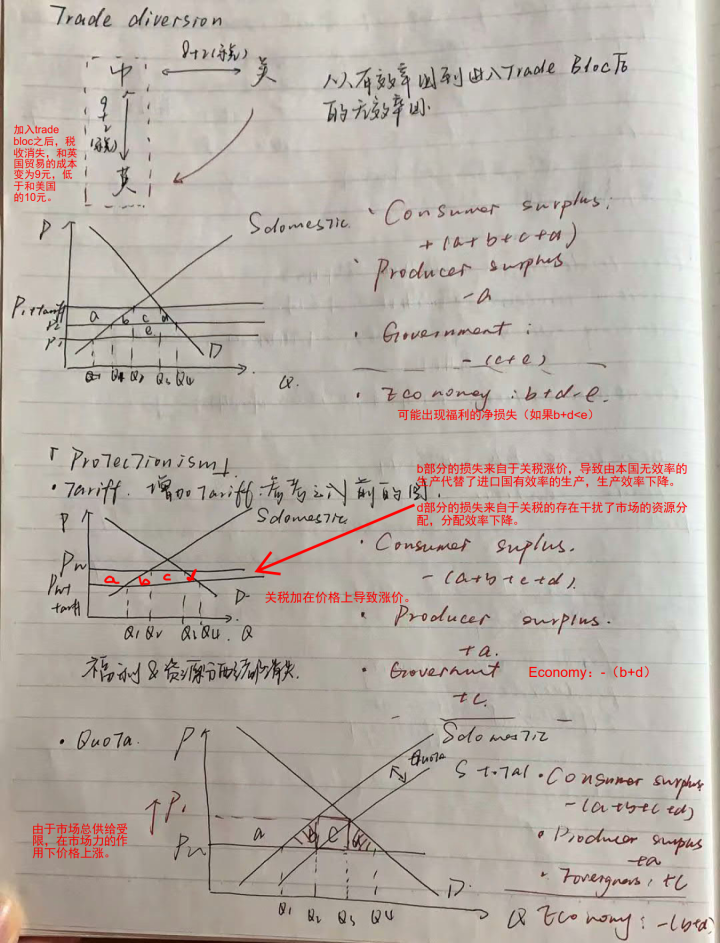 Trade diversion
中
8+2(关税)
美
9+2(关税)
英
从有效率国到进入Trade Bloc后
的无效率国.
加入trade
bloc之后，税
收消失，和英
国贸易的成本
变为9元，低
于和美国
的10元。
P
Sdomestic
P1+tariff
P2
P1
a
b
c
d
e
D
Q1
Q2
Q3
Q4
Q
· Consumer surplus:
+(a+b+c+d)
· Producer surplus
-a
· Government:
-(c+e)
· Economy: b+d-e.
可能出现福利的净损失（如果b+d<e）
「Protectionism」
· Tariff. 增加Tariff:参考之前的图.
b部分的损失来自于关税涨价，导致由本国无效率的
生产代替了进口国有效率的生产，生产效率下降。
d部分的损失来自于关税的存在干扰了市场的资源分
配，分配效率下降。
P
Sdomestic
Pw
Pw+
tariff
a
b
c
d
D
Q1
Q2
Q3
Q4
Q
关税加在价格上导致涨价。
福利&资源分配
· Consumer suplus.
-(a+b+c+d)
· Producer surplus.
+a.
· Goverment
+c.
Economy：-（b+d）
· Quota.
P
Sdomestic
Quota
S total
↑P1
Pw
a
b
c
d
D
Q1
Q2
Q3
Q4
Q
由于市场总供给受
限，在市场力的作
用下价格上涨。
· Consumer surplus
-(a+b+c+d)
· Producer surplus
+a
· Foreigners: +c
Economy: -(b+d)